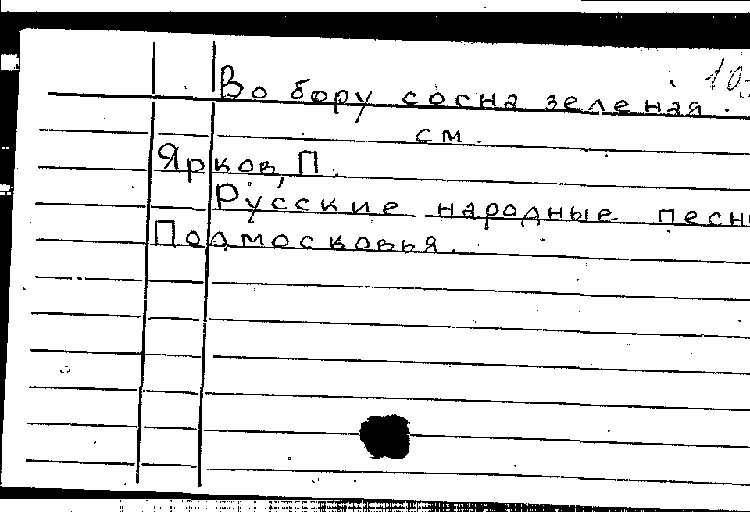 Во бору сосна зеленая.
см.
Ярков, П.
Русские народные
Подмосковья.